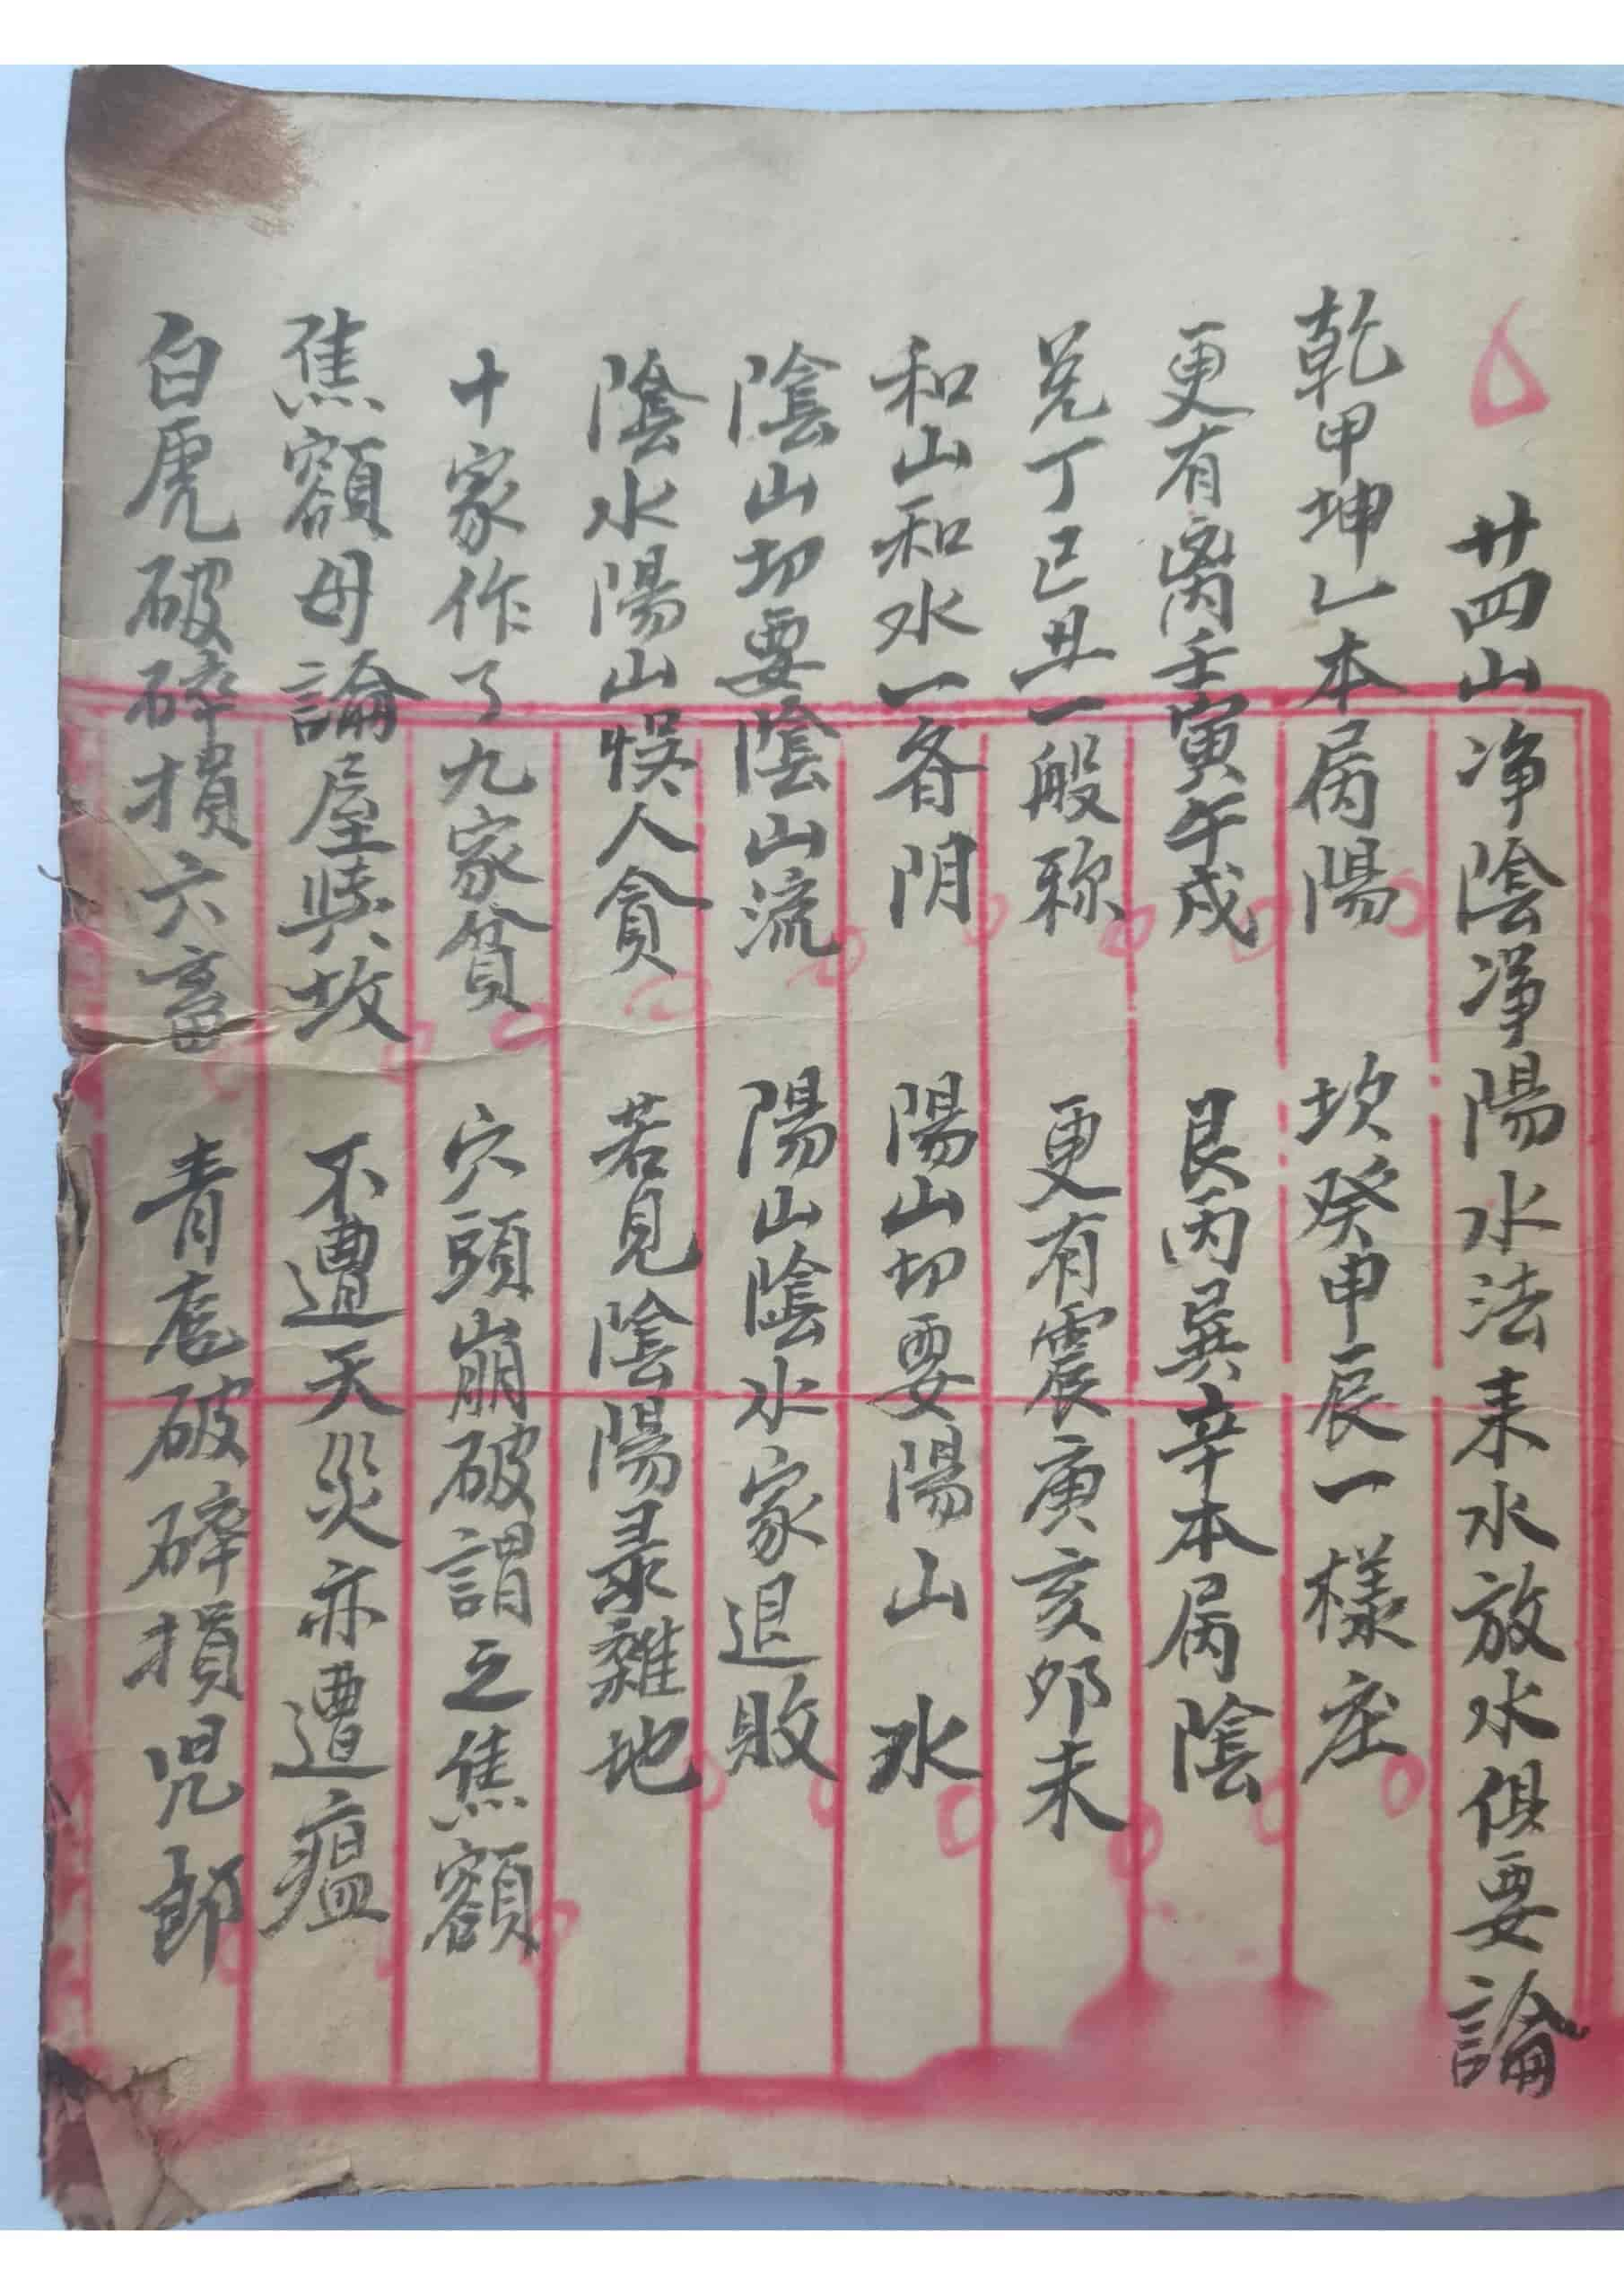 廿四山净陰凈陽水法耒水放水俱要論
乾甲坤乙本屬陽 坎癸申辰一樣庄
更有离壬寅午戍 艮丙巽辛本屬陰
兌丁巳丑一般称 更有震庚亥卯未
和山和水一各阴 陽山切要陽山水
陰山切要陰山流 陽山陰水家退敗
陰水陽山悮人貪 若見陰陽录雜地
十家作了九家貧 穴頭崩破謂之焦額
焦額毋論屋與坟 不遭天災亦遭瘟
白虎破碎損六畜 青龙破碎損児郎